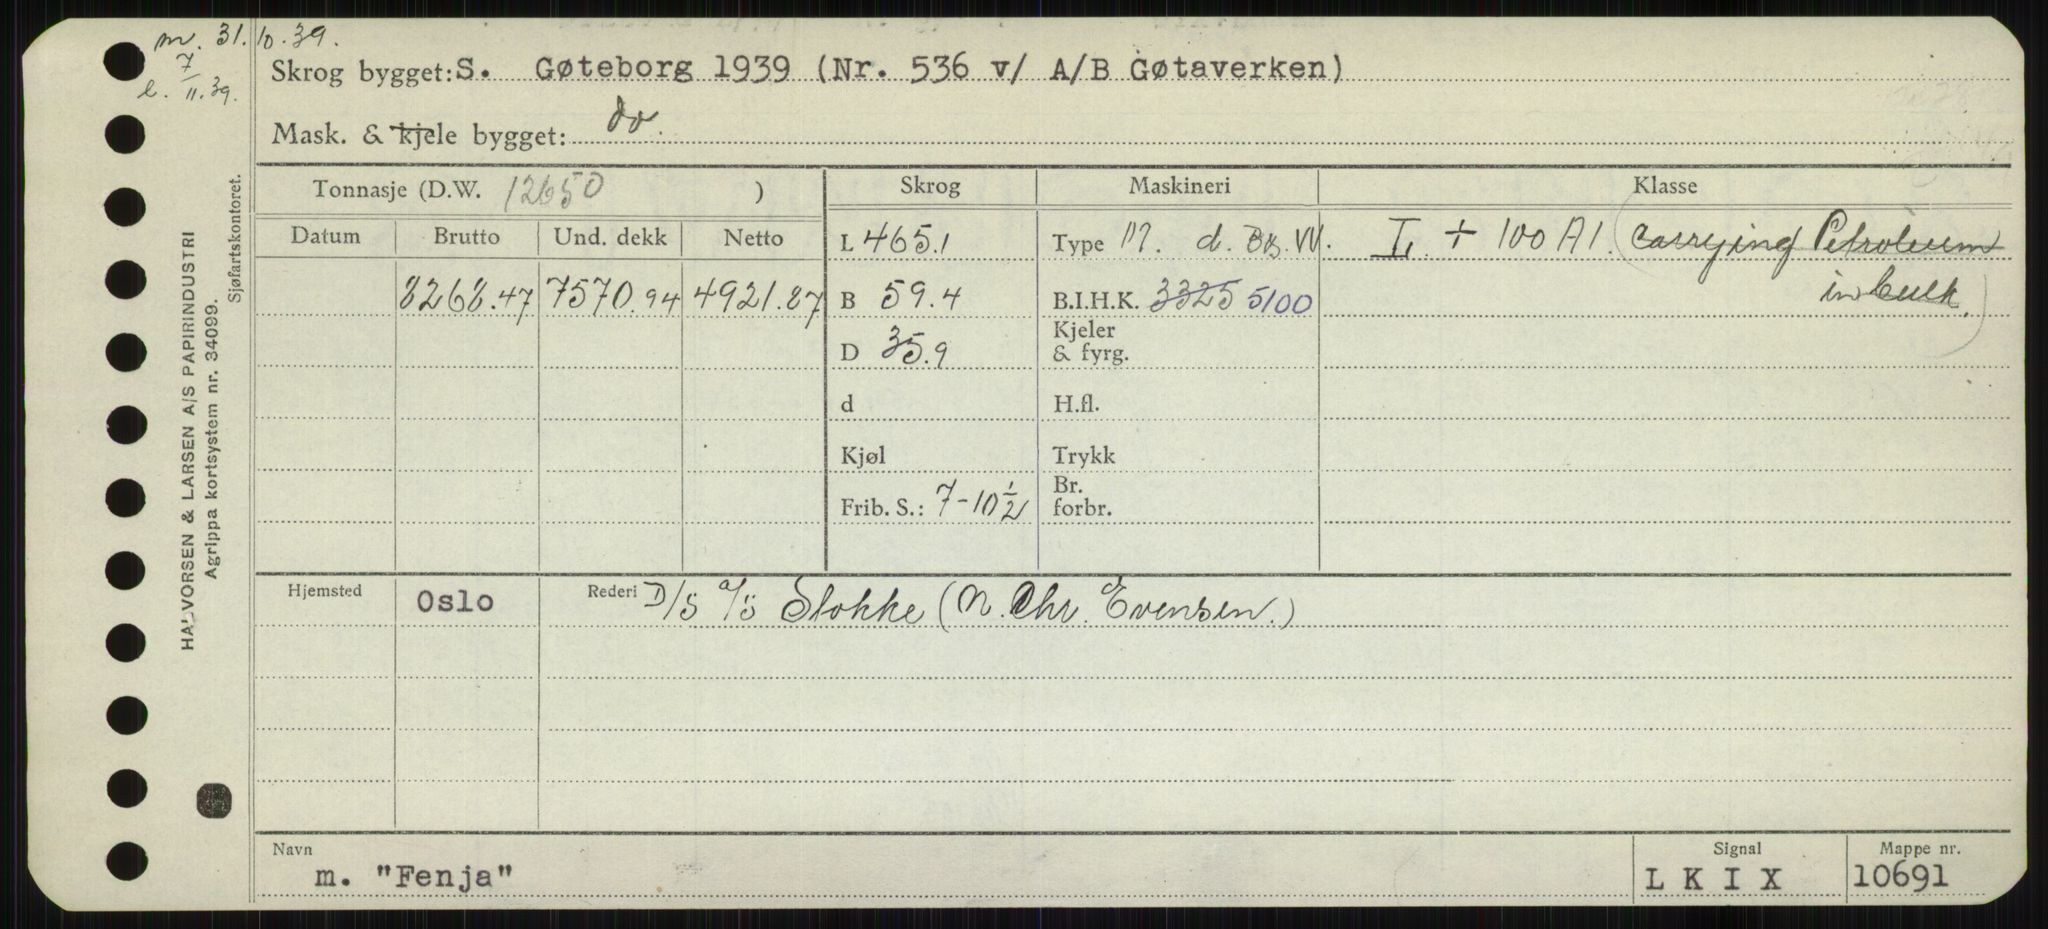 m. 31.10.39.
l. 7/11.39.
Skrog bygget: S. Gøteborg 1939 (Nr. 536 v/ A/B Gøtaverken)
Mask. & kjele bygget: do.
Tonnasje (D.W. 12650 )
Skrog
Maskineri
Klasse
Datum
Brutto
Und. dekk
Netto
8268.47
7570.94
4921.87
L 465.1
B 59.4
D 35.9
d
Kjøl
Frib. S.: 7-10 1/2
Type M. d. VV.
B.I.H.K. 3325 5100
Kjeler
& fyrg.
H.fl.
Trykk
Br.
forbr.
L + 100 A1. (carrying Petroleum
in bulk.)
Hjemsted
Oslo
Rederi D/S A/S Stokke (N. Chr. Evensen.)
Navn
m. "Fenja"
Signal
L K I X
Mappe nr.
10691
HALVORSEN & LARSEN A/S PAPIRINDUSTRI
Agrippa kortsystem nr. 34099.
Sjøfartskontoret.